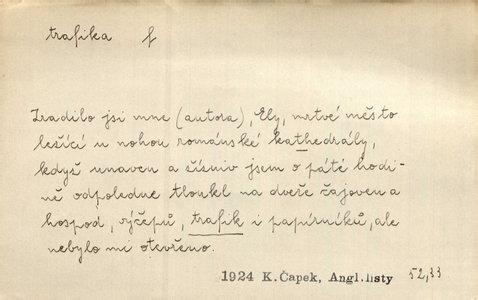 trafika f
Zradilo jsi mne (autora), Ely, mrtvé město
ležící u nohou románské kathedrály,
když unaven a žízniv jsem o páté hodi-
ně odpoledne tloukl na dveře čajoven a
hospod, výčepů, trafik i papírníků, ale
nebylo mi otevřeno.
1924 K. Čapek, Angl. listy 52,33